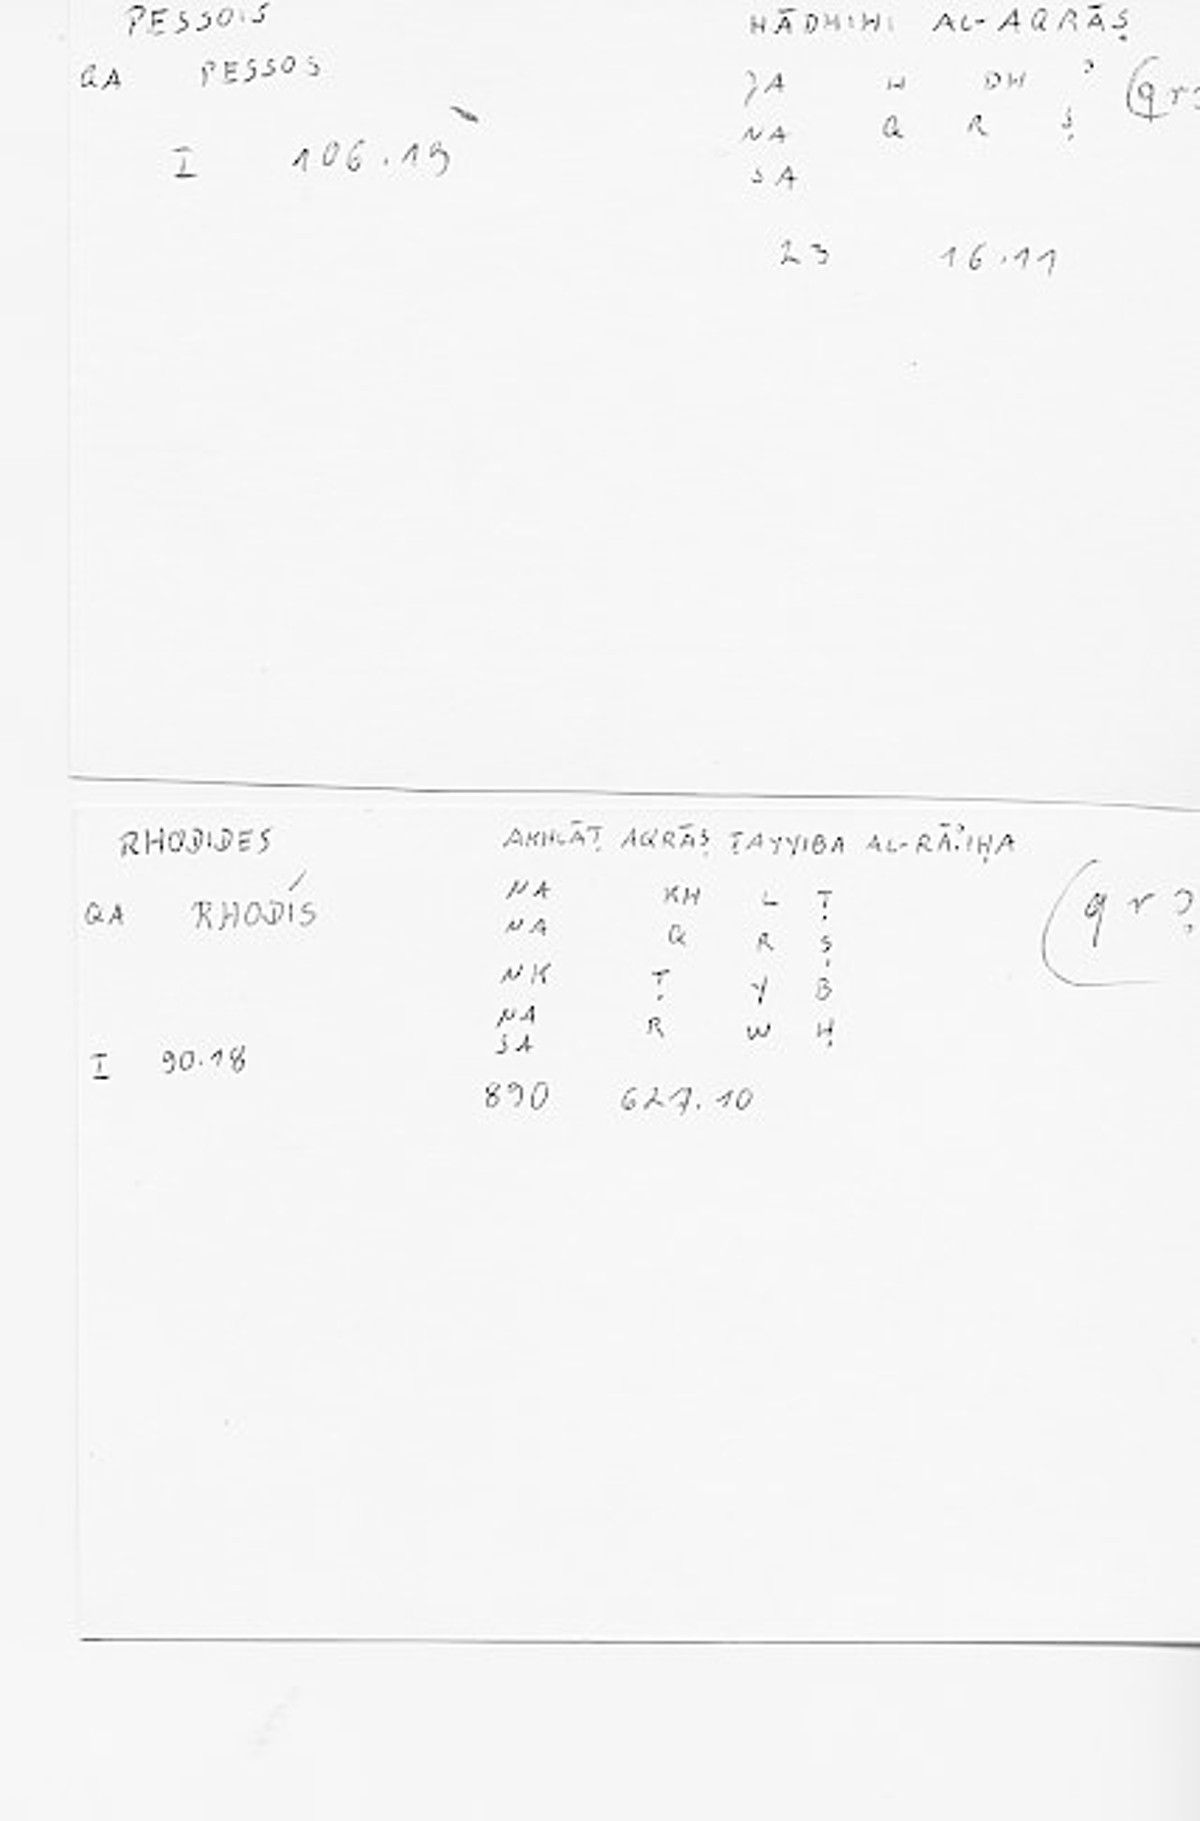 PESSOIS
QA PESSOS
I 106.19
HĀDHIHI AL-AQRĀṢ
JA H DH ʾ
NA Q R Ṣ (qr
SA
23 16.11
RHODIDES
QA RHODÍS
I 90.18
AKHLĀṬ AQRĀṢ ṬAYYIBA AL-RĀʾIḤA
NA KH L Ṭ
NA Q R Ṣ (qr?
NK Ṭ Y B
NA R W Ḥ
SA
890 627.10